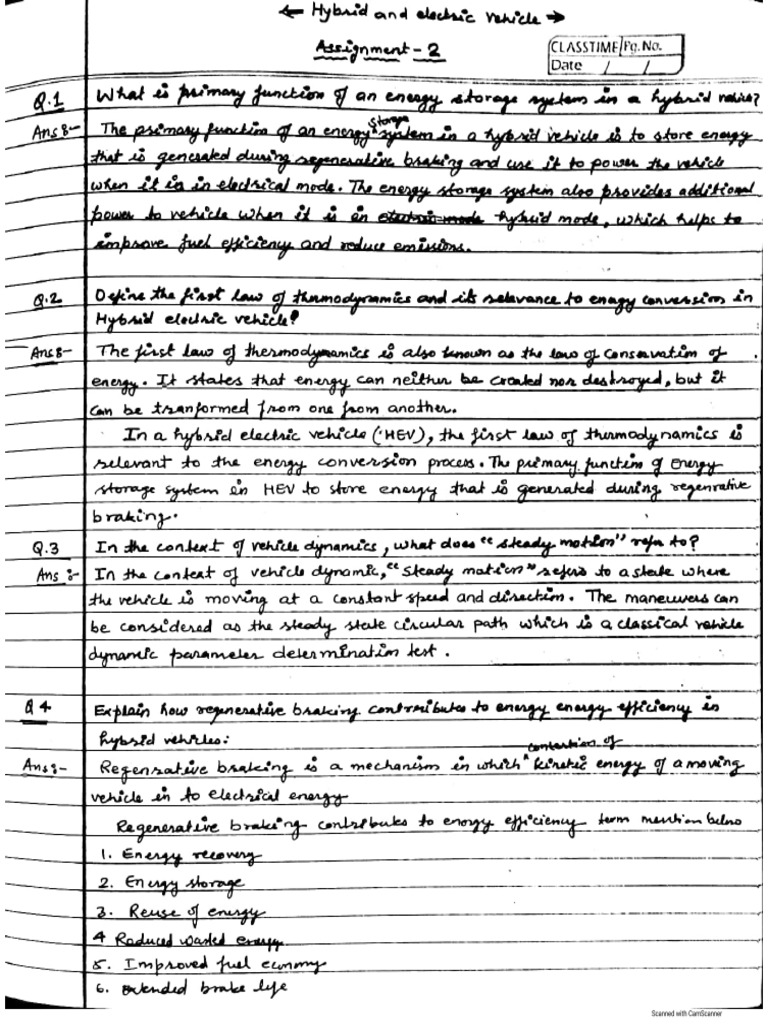 ← Hybrid and electric vehicle →
Assignment - 2
CLASSTIME Pg. No.
Date / /
Q.1 What is primary function of an energy storage system in a hybrid vehicle?
Ans:- The primary function of an energy storage system in a hybrid vehicle is to store energy
that is generated during regenerative braking and use it to power the vehicle
when it is in electrical mode. The energy storage system also provides additional
power to vehicle when it is in electric mode hybrid mode, which helps to
improve fuel efficiency and reduce emissions.
Q.2 Define the first law of thermodynamics and its relevance to enagy conversion in
Hybrid electric vehicle?
Ans:- The first law of thermodynamics is also known as the law of conservation of
energy. It states that energy can neither be created nor destroyed, but it
can be tranformed from one from another.
In a hybrid electric vehicle (HEV), the first law of thermodynamics is
relevant to the energy conversion process. The primary function of energy
storage system in HEV to store energy that is generated during regenrative
braking.
Q.3 In the context of vehicle dynamics, what does "steady motion" refer to?
Ans:- In the context of vehicle dynamic, "steady motion" refers to a state where
the vehicle is moving at a constant speed and direction. The maneuvers can
be considered as the steady state circular path which is a classical vehicle
dynamic parameter determination test.
Q4 Explain how regenerative braking contributes to energy energy efficiency in
hybrid vehicles:
Ans:- Regenerative braking is a mechanism in which contertion of kinetic energy of a moving
vehicle in to electrical energy
Regenerative braking contributes to energy efficiency term mention below
1. Energy recovery
2. Energy storage
3. Reuse of energy
4 Reduced wasted energy
5. Improved fuel economy
6. extended brake life
Scanned with CamScanner